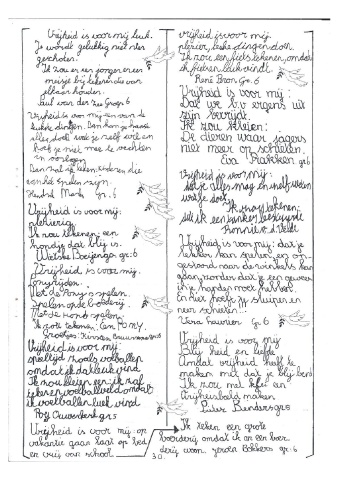 Vrijheid is voor mij leuk.
Je wordt gelukkig niet neer
geschoten.
Ik zou er een jongen en een
meisje bij tekenen die van
elkaar houden.
Paul van der Zee Groep 6
Vrijheid is voor mij een van de
leukste dingen. Dan kan je haast
alles doen wat je zelf wil en
hoef je niet mee te vechten
in oorlogen.
Dan zal ik teken: kinderen die
aan het spelen zijn.
gr. 6
Vrijheid is voor mij:
plezierig.
Ik zou tekenen: een
hondje dat blij is.
gr. 6
Vrijheid is voor mij.
ponyrijden.
Met de Pony's spelen.
Spelen op de boerderij.
Met de hond spelen.
Ik zou tekenen: Een PONY.
Groetjes: Kirsten
Vrijheid is voor mij:
speltijd zoals volballen
omdat ik dat leuk vind
Ik zou kiezen een: ik zal
teken voetbalveld omdat
ik voetballen leuk vind
Roy gr 5
Vrijheid is voor mij: op
vakantie gaan laat op bed
en vrij van school
30
vrijheid is voor mij:
plezier, leuke dingen doen.
Ik zou een fiets tekenen, omdat
ik fietsen leuk vind.
René Bron Gr. 6
Vrijheid is voor mij:
Dat we b.v ergens uit
zijn bevrijdt.
Ik zou kleien:
De dieren waar jagers
niet meer op schieten.
Eva Frakken gr 6
Vrijheid is voor mij:
dat je alles mag en zelf weten
wat je doet.
Ik zou tekenen:
Vrijheid is voor mij: dat je
lekker kan spelen, en on-
gestoord naar de winkels kan
gaan, zonder dat je een geweer
in je handen moet hebben.
En niet hoeft te sluipen en
neer schieten.
Vera Laurier Gr. 6
Vrijheid is voor mij
Blij heid en liefde
Omdat vrijheid heeft te
maken met dat je blij bent
Ik zou met klei een
vrijheidsbeeld maken
Peter Benders gr 5
Ik teken een grote
boerderij omdat ik in een boer
derij woon. Jeroen Bökkers gr. 6